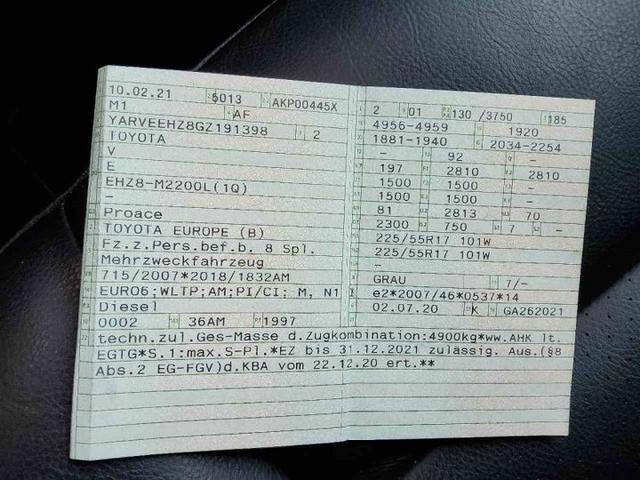 10.02.21 5013 AKP00445X
M1 AF
YARVEEHZ8GZ191398 2
TOYOTA
V
E
EHZ8-M2200L(1Q)
-
Proace
TOYOTA EUROPE (B)
Fz.z.Pers.bef.b. 8 Spl.
Mehrzweckfahrzeug
715/2007*2018/1832AM
EURO6;WLTP;AM;PI/CI; M, N1
Diesel
0002 36AM 1997
2 01 130 /3750 185
4956-4959 1920
1881-1940 2034-2254
- 92 -
197 2810 2810
1500 1500 -
1500 1500 -
81 2813 70
2300 750 7 -
225/55R17 101W
225/55R17 101W
-
GRAU 7/-
e2*2007/46*0537*14
02.07.20 K GA262021
techn.zul.Ges-Masse d.Zugkombination:4900kg*ww.AHK lt.
EGTG*S.1:max.S-Pl.*EZ bis 31.12.2021 zulässig. Aus.(§8
Abs.2 EG-FGV)d.KBA vom 22.12.20 ert.**